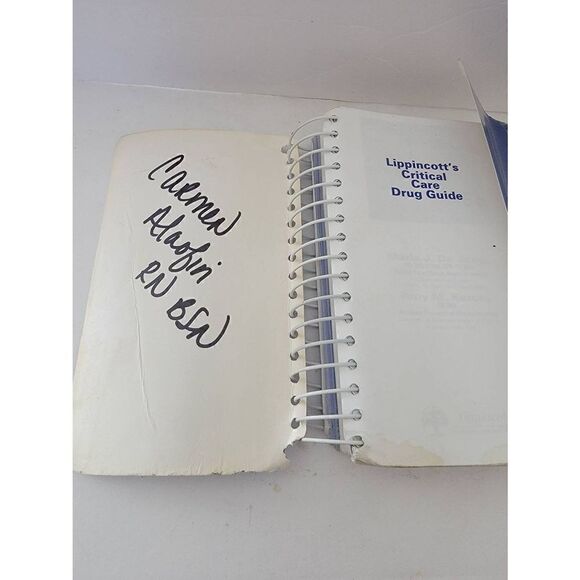 CARMEN
Alaofin
RN BSN
Lippincott's
Critical
Care
Drug Guide